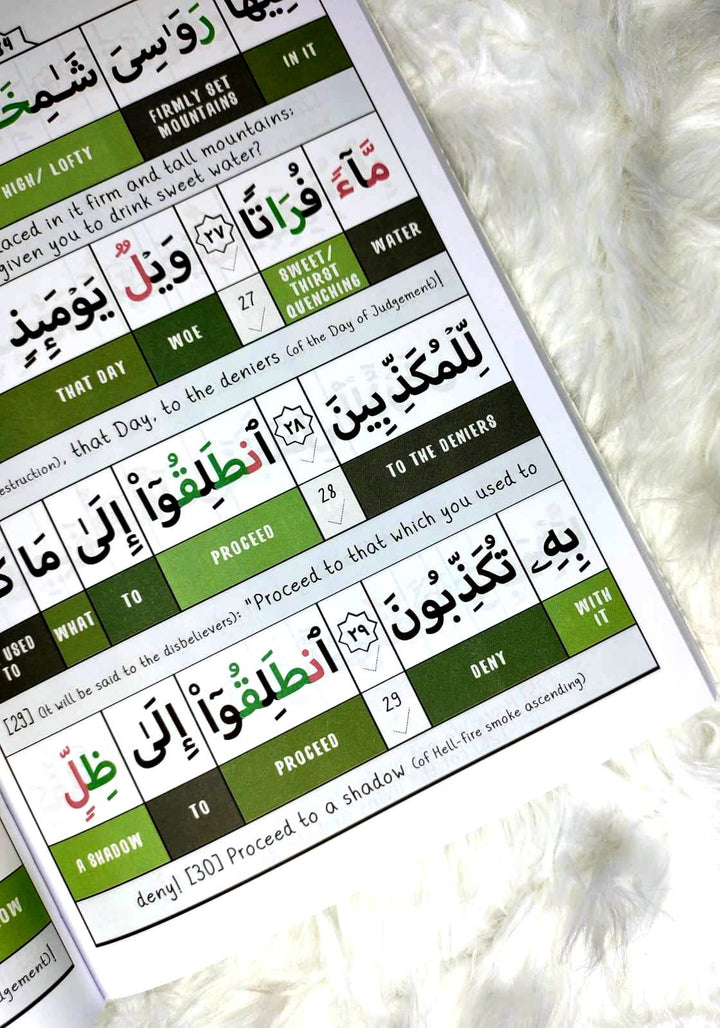 فِيهَا رَوَٰسِىَ
IN IT FIRMLY SET MOUNTAINS HIGH/ LOFTY
laced in it firm and tall mountains:
given you to drink sweet water?
مَّآءً فُرَاتًا ٢٧ وَيْلٌ يَوْمَئِذٍ
WATER SWEET/ THIRST QUENCHING 27 WOE THAT DAY
that Day, to the deniers (of the Day of Judgement)!
لِّلْمُكَذِّبِينَ ٢٨ ٱنطَلِقُوٓا۟ إِلَىٰ مَا
TO THE DENIERS 28 PROCEED TO WHAT USED TO
[29] (It will be said to the disbelievers): "Proceed to that which you used to
بِهِۦ تُكَذِّبُونَ ٢٩ ٱنطَلِقُوٓا۟ إِلَىٰ ظِلٍّ
WITH IT DENY 29 PROCEED TO A SHADOW
deny! [30] Proceed to a shadow (of Hell-fire smoke ascending)